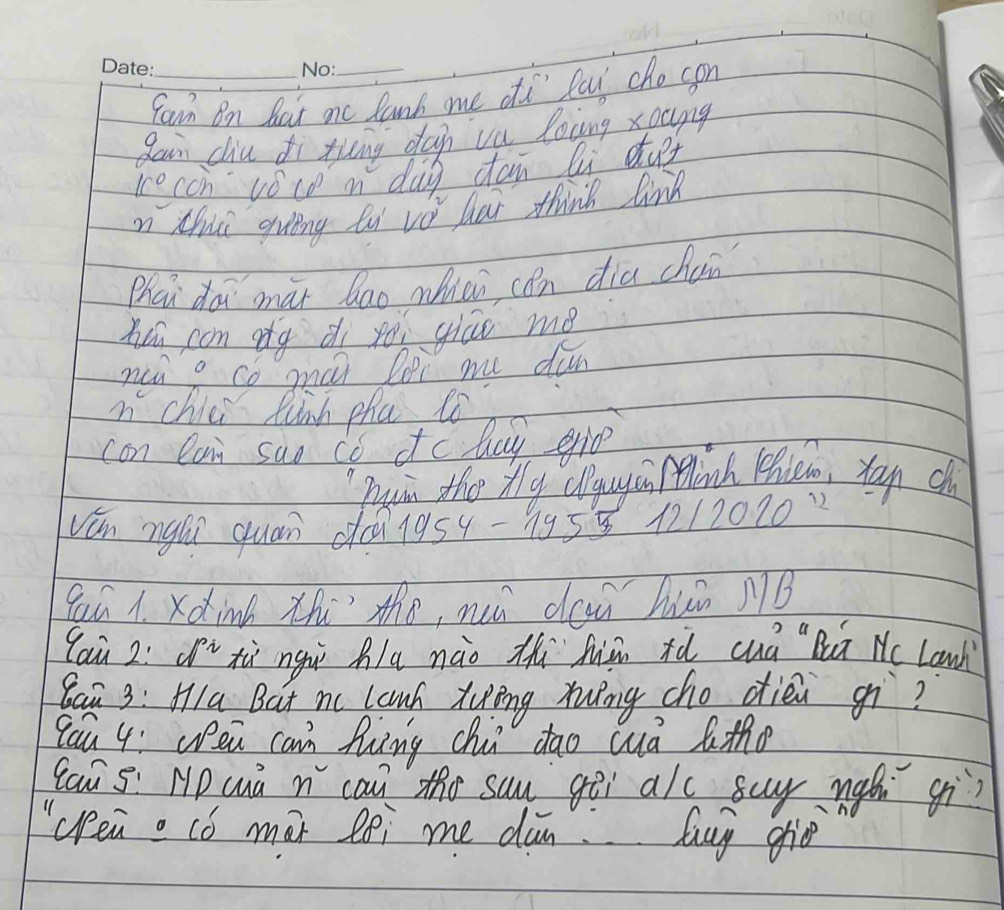 Date: No:
Cảm ơn bát nc lành mẹ để lại cho con
Làm dịu đi tiếng đập va loảng xoảng
Ko còn vô cớ n~ dây đàn bị đứt
n~ thuỷ gương bị vỡ bất thình lình
Phải đối mặt bao nhiêu cơn địa chấn
trên con đg đi tới giấc mơ
nếu o có một lời mẹ dặn
n~ chiều bình pha lê
con làm sao có đc bây giờ
"trích thơ Ng Minh Khiêm, tạp chí
Văn nghệ quân đội 1954 - 1955 12/2020"
Câu 1. Xđịnh thể thơ, nêu dấu hiệu NB
Câu 2: từ ngữ h/a nào thể hiện td của "Bát Nc Lành"
Câu 3: H/a Bát nc lành tượng trưng cho điều gì?
Câu 4: Nêu cảm hứng chủ đạo của b.thơ
Câu 5: ND của n~ câu thơ sau gợi a/c suy nghĩ gì?
"Nếu o có một lời mẹ dặn .... bây giờ"